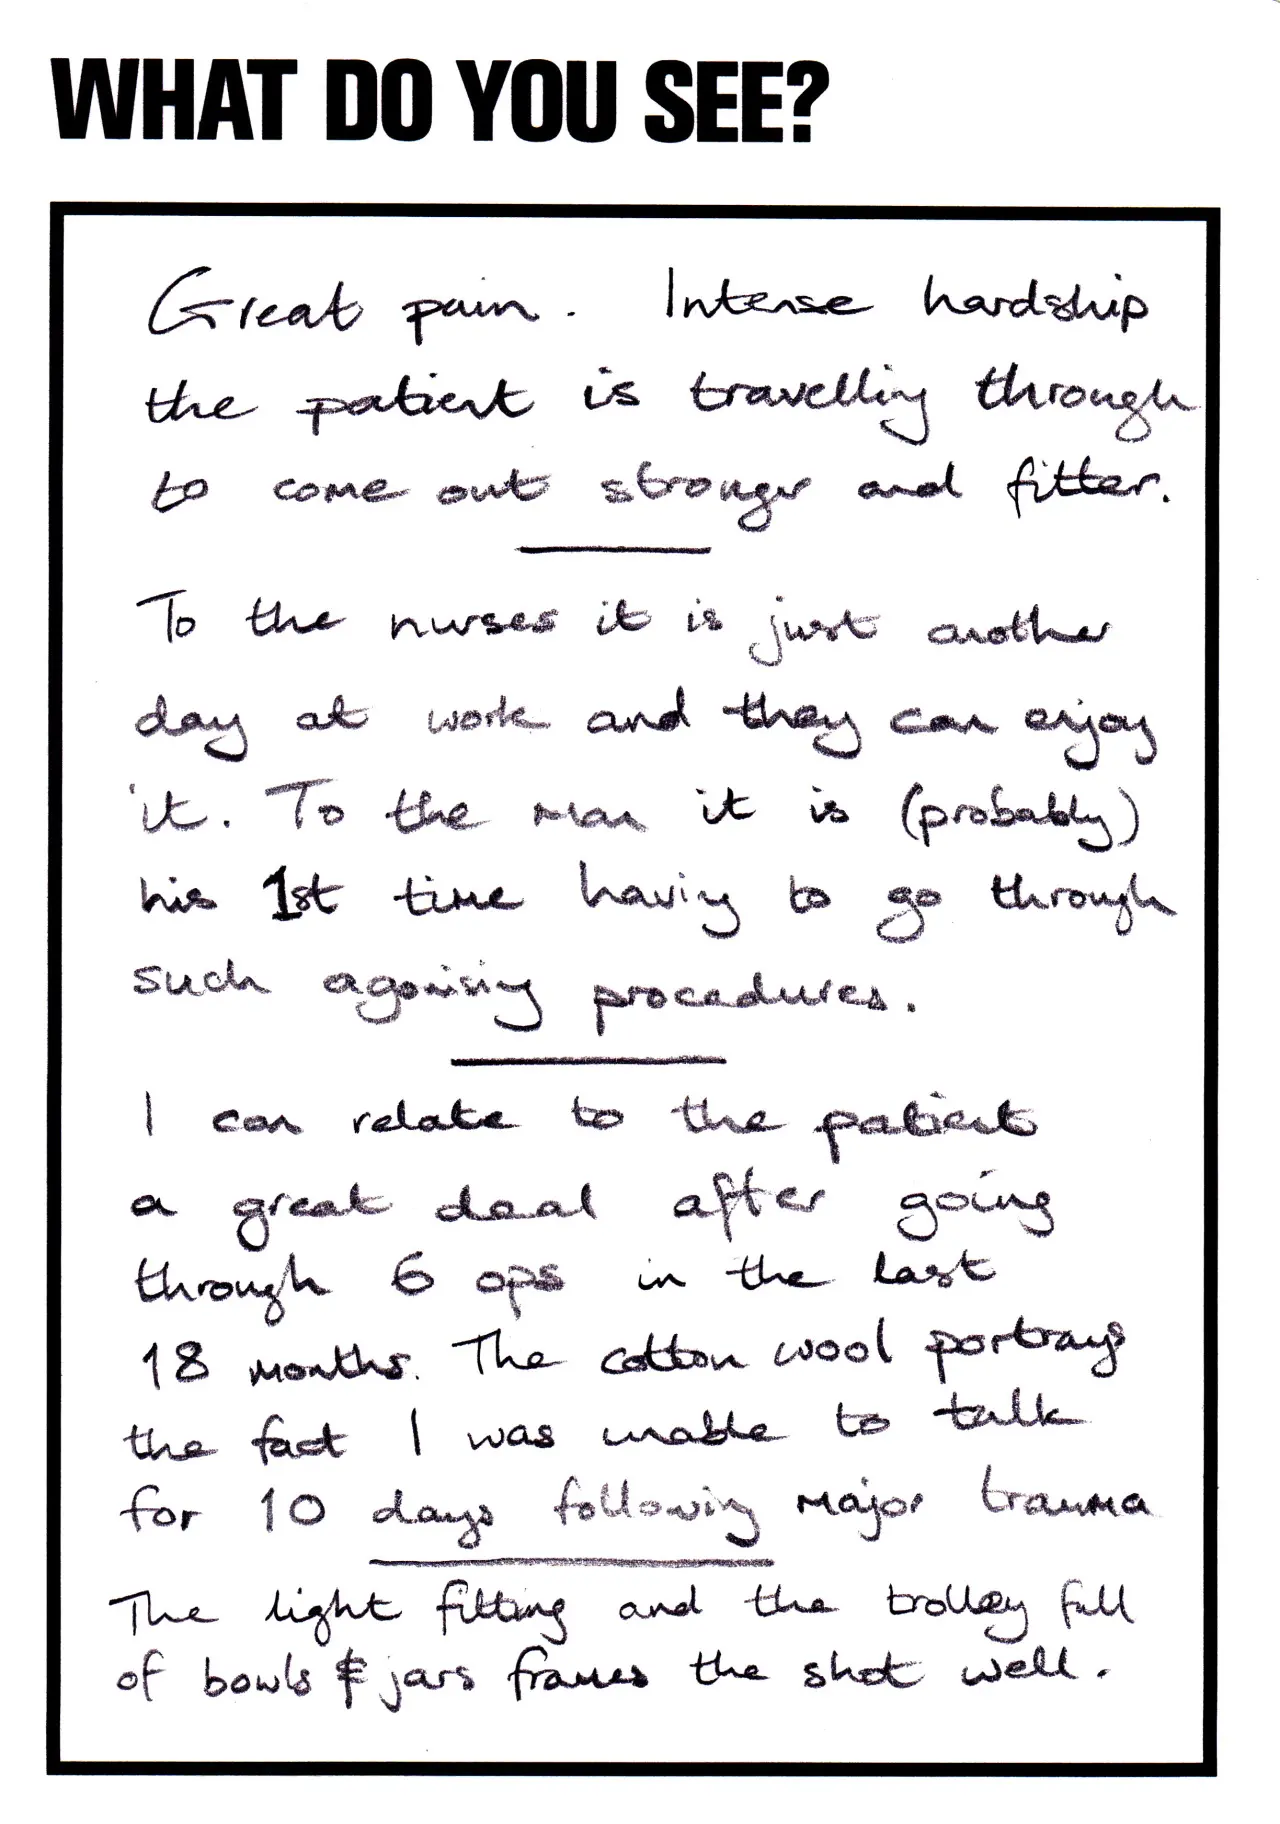 WHAT DO YOU SEE?
Great pain. Intense hardship
the patient is travelling through
to come out stronger and fitter.
To the nurses it is just another
day at work and they can enjoy
it. To the man it is (probably)
his 1st time having to go through
such agonising procedures.
I can relate to the patient
a great deal after going
through 6 ops in the last
18 months. The cotton wool portrays
the fact I was unable to talk
for 10 days following major trauma
The light fitting and the trolley full
of bowls & jars frames the shot well.